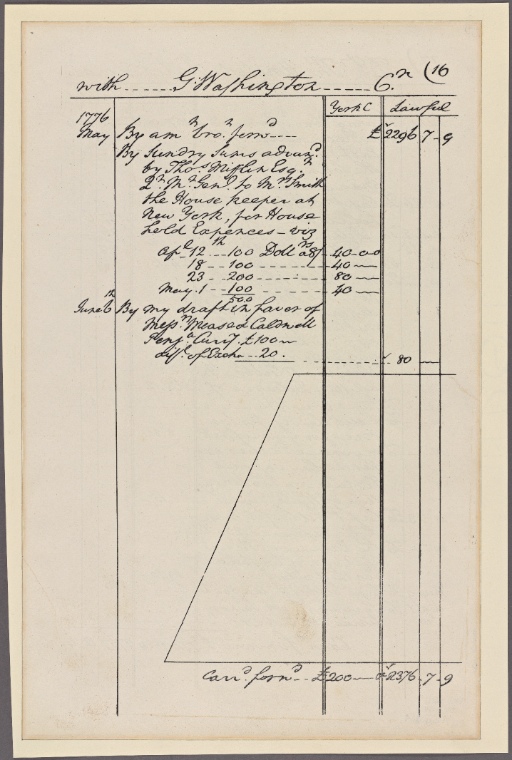 with ...... G Washington ...... Cr. (16
York C Lawful
1776
May By amt. bro. forwd. --- £ 2296 7 9
By Sundry Sums advand.
by Thos. Mifflin Esqr.
Qr. Mr. Genl. to Mr. Smith
the House keeper at
New York, for House
hold Expences - viz
Apl. 12th - 100 Dollars @ 8/ 40-0-0
18 - 100 --- 40 —
23 - 200 --- 80 —
May 1 - 100 --- 40 —
500
June 6th By my draft in favor of
Messrs. Mease & Caldwell
Pensa. Curry. £100 —
diffe. of Excha. --- 20. --- 80 —
Carrd. forwd. --- £ 200 — £ 2376 - 7 - 9